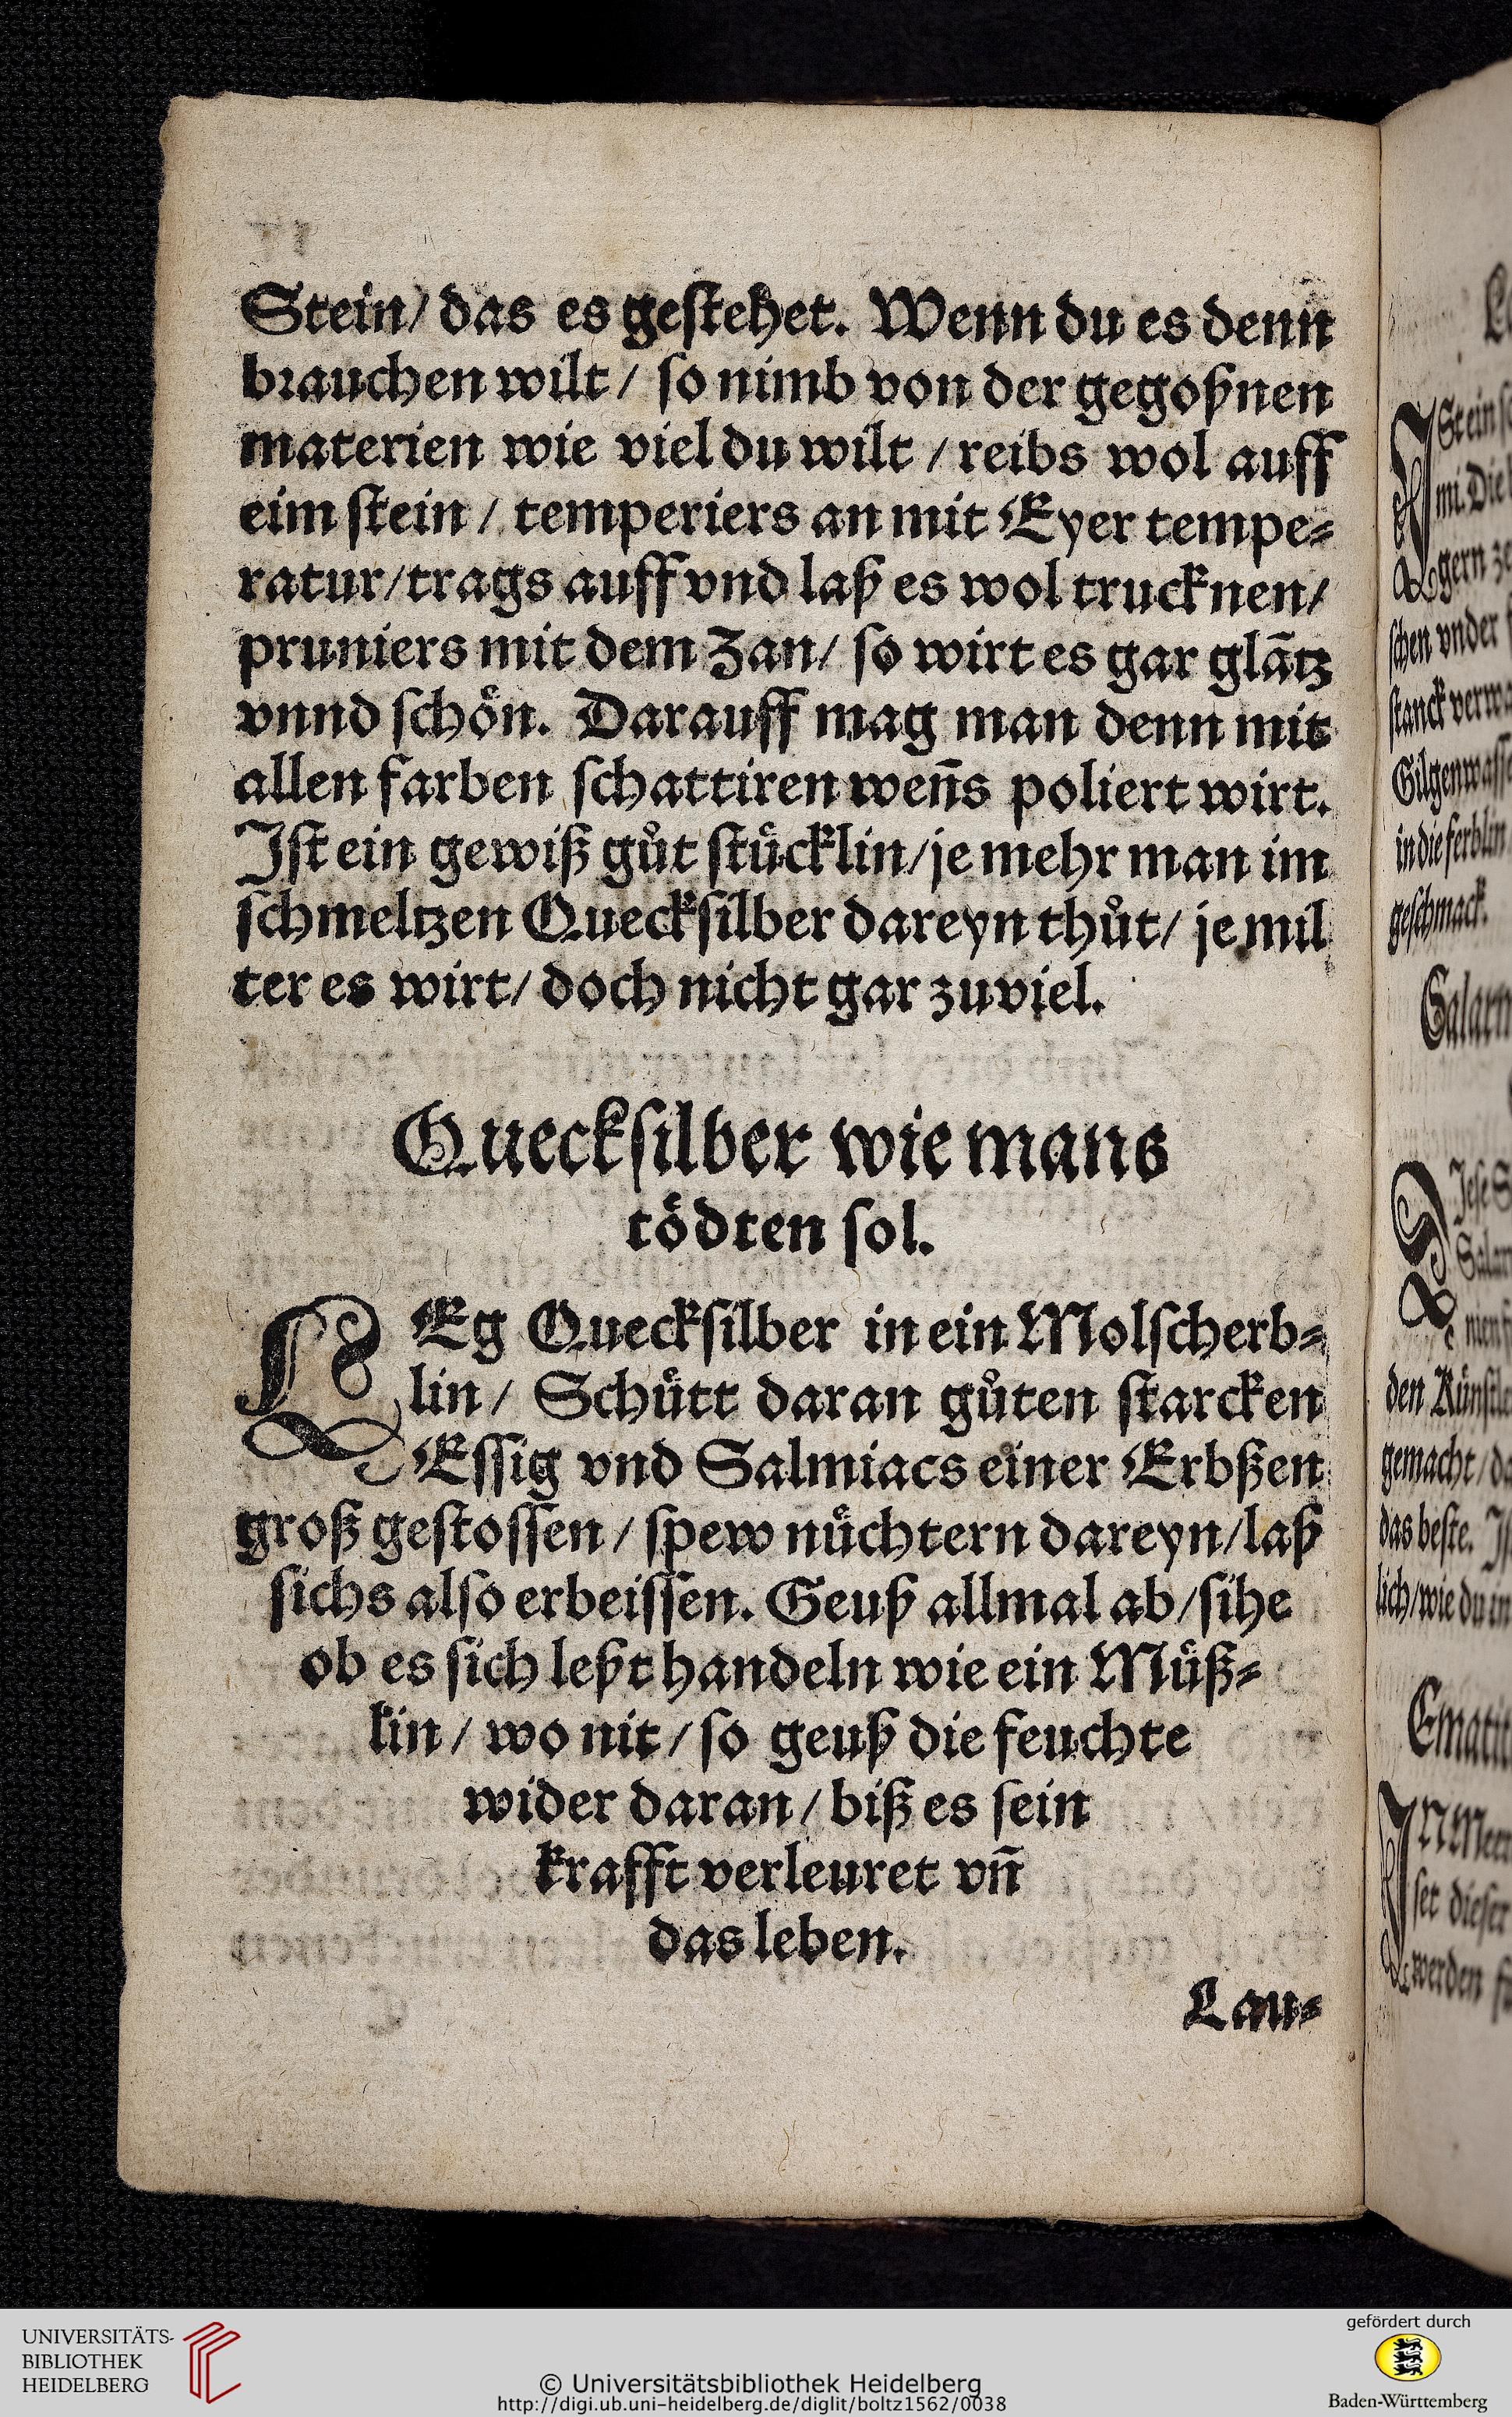 Stein/ das es geſtehet. Wenn du es denn
brauchen wilt / ſo nimb von der gegoßnen
materien wie viel du wilt / reibs wol auff
eim ſtein / temperiers an mit Eyer tempe⸗
ratur/trags auff vnd laß es wol trucknen/
pruniers mit dem Zan/ ſo wirt es gar glātz
vnnd ſchoͤn. Darauff mag man denn mit
allen farben ſchattiren wen̄s poliert wirt.
Iſt ein gewiß gůt ſtuͤcklin/je mehr man im
ſchmeltzen Queckſilber dareyn thůt/ je mil
ter es wirt/ doch nicht gar zuviel.
Queckſilber wie mans
toͤdten ſol.
LEg Queckſilber in ein Molſcherb⸗
lin/ Schuͤtt daran gůten ſtarcken
Eſſig vnd Salmiacs einer Erbßen
groß geſtoſſen / ſpew nuͤchtern dareyn/laß
ſichs alſo erbeiſſen. Geuß allmal ab/ſihe
ob es ſich leßt handeln wie ein Muͤß⸗
lin / wo nit / ſo geuß die feuchte
wider daran / biß es ſein
krafft verleuret vn̄
das leben.
Lau⸗
Stein
mi. Die
gern
ſchen vnder
ſtanck
Gilgenwaſſ
in die ferblin
geſchmack.
den
gemacht / 
das beſte.
lich/wie du
ſet dieſer
werden
UNIVERSITÄTS-
BIBLIOTHEK
HEIDELBERG
© Universitätsbibliothek Heidelberg
http://digi.ub.uni-heidelberg.de/diglit/boltz1562/0038
gefördert durch
Baden-Württemberg